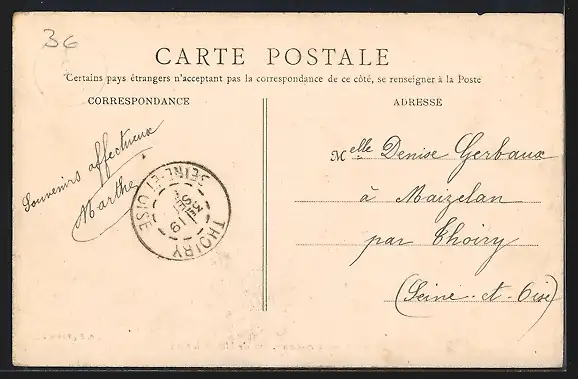 36
CARTE POSTALE
Certains pays étrangers n'acceptant pas la correspondance de ce côté, se renseigner à la Poste
CORRESPONDANCE
ADRESSE
Souvenirs affectueux
Marthe
THOIRY
SEINE-ET-OISE
Melle Denise Gerbaux
à Maizelan
par Thoiry
(Seine-et-Oise)